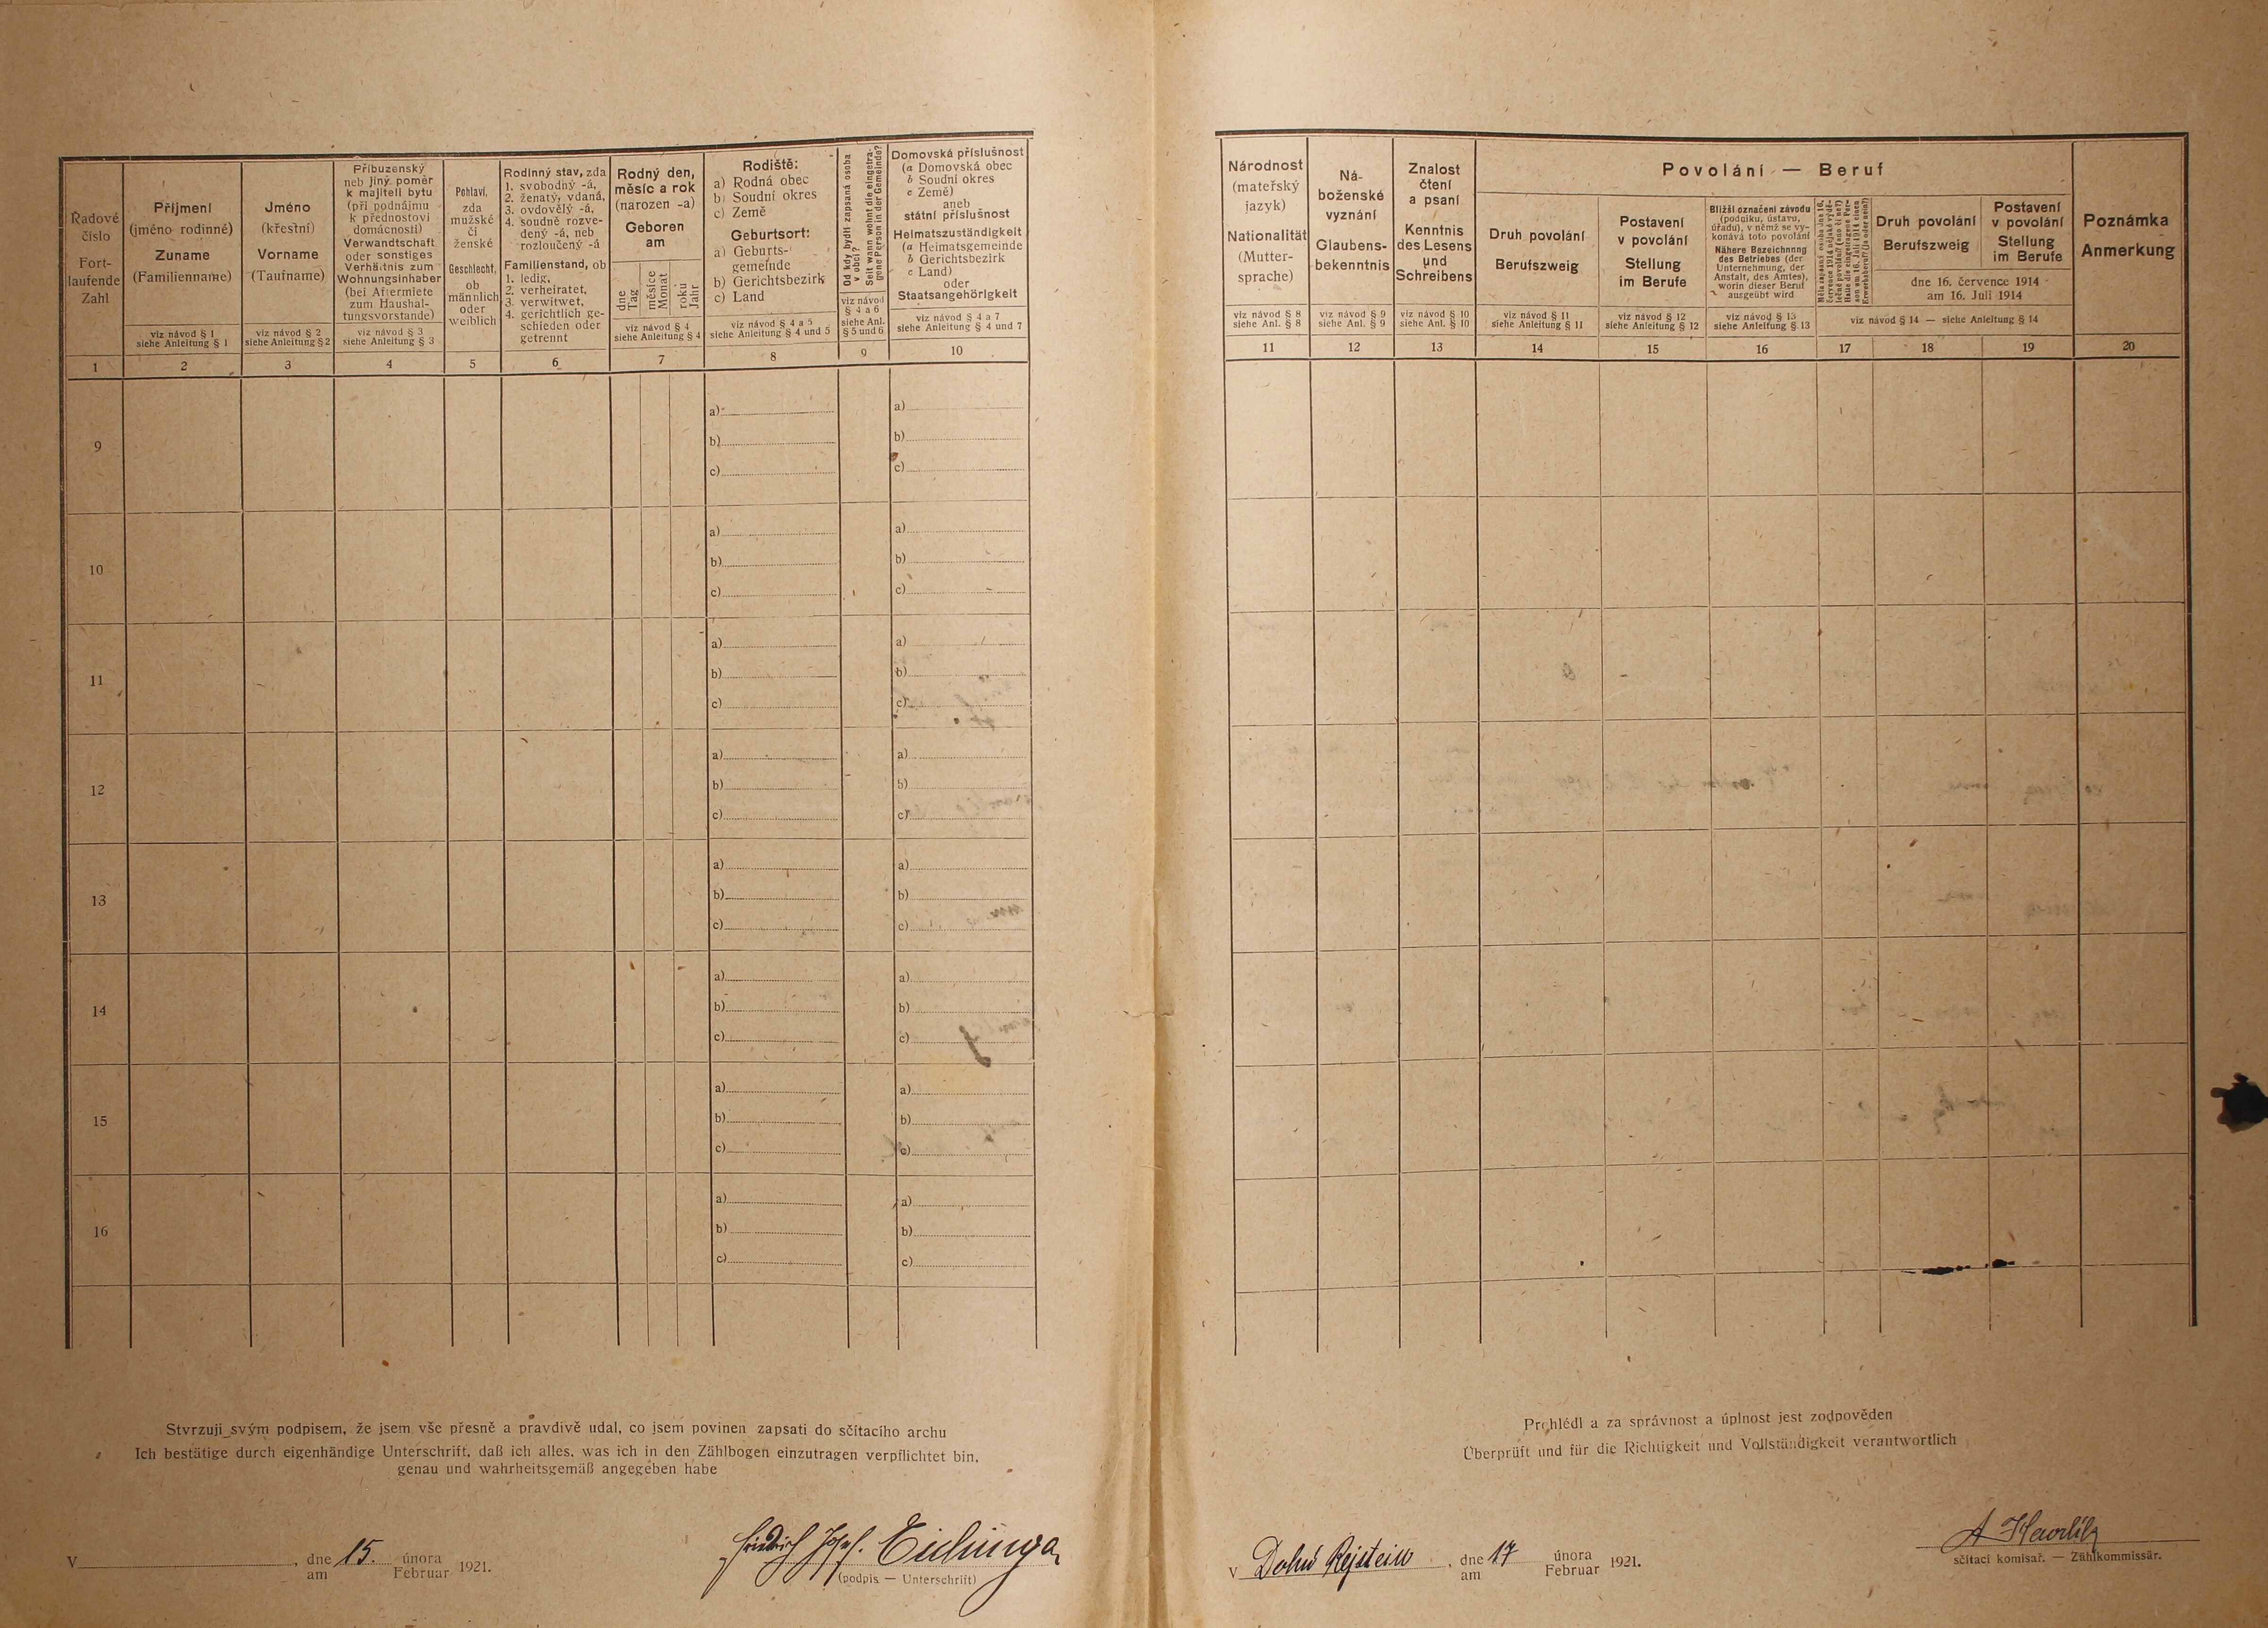 Řadové
číslo
Fort-
laufende
Zahl
1
Příjmení
(jméno rodinné)
Zuname
(Familienname)
viz návod § 1
siehe Anleitung § 1
2
Jméno
(křestní)
Vorname
(Taufname)
viz návod § 2
siehe Anleitung § 2
3
Příbuzenský
neb jiný poměr
k majiteli bytu
(při podnájmu
k přednostovi
domácnosti)
Verwandtschaft
oder sonstiges
Verhältnis zum
Wohnungsinhaber
(bei Aftermiete
zum Haushal-
tungsvorstande)
viz návod § 3
siehe Anleitung § 3
4
Pohlaví,
zda
mužské
či
ženské
Geschlecht,
ob
männlich
oder
weiblich
5
Rodinný stav, zda
1. svobodný -á,
2. ženatý, vdaná,
3. ovdovělý -á,
4. soudně rozve-
dený -á, neb
rozloučený -á
Familienstand, ob
1. ledig,
2. verheiratet,
3. verwitwet,
4. gerichtlich ge-
schieden oder
getrennt
6
Rodný den,
měsíc a rok
(narozen -a)
Geboren
am
dne
Tag
měsíce
Monat
roku
Jahr
viz návod § 4
siehe Anleitung § 4
7
Rodiště:
a) Rodná obec
b) Soudní okres
c) Země
Geburtsort:
a) Geburts-
gemeinde
b) Gerichtsbezirk
c) Land
viz návod § 4 a 5
siehe Anleitung § 4 und 5
8
Od kdy bydlí zapsaná osoba
v obci?
Seit wann wohnt die eingetra-
gene Person in der Gemeinde?
viz návod
§ 4 a 6
siehe Anl.
§ 5 und 6
9
Domovská příslušnost
(a Domovská obec
b Soudní okres
c Země)
aneb
státní příslušnost
Heimatszuständigkeit
(a Heimatsgemeinde
b Gerichtsbezirk
c Land)
oder
Staatsangehörigkeit
viz návod § 4 a 7
siehe Anleitung § 4 und 7
10
9
a) a)
b) b)
c) c)
10
a) a)
b) b)
c) c)
11
a) a)
b) b)
c) c)
12
a) a)
b) b)
c) c)
13
a) a)
b) b)
c) c)
14
a) a)
b) b)
c) c)
15
a) a)
b) b)
c) c)
16
a) a)
b) b)
c) c)
Stvrzuji svým podpisem, že jsem vše přesně a pravdivě udal, co jsem povinen zapsati do sčítacího archu
Ich bestätige durch eigenhändige Unterschrift, daß ich alles, was ich in den Zählbogen einzutragen verpflichtet bin,
genau und wahrheitsgemäß angegeben habe
V , dne 15. února 1921.
am Februar
Friedrich Josef.
(podpis — Unterschrift)
Národnost
(mateřský
jazyk)
Nationalität
(Mutter-
sprache)
viz návod § 8
siehe Anl. § 8
11
Ná-
boženské
vyznání
Glaubens-
bekenntnis
viz návod § 9
siehe Anl. § 9
12
Znalost
čtení
a psaní
Kenntnis
des Lesens
und
Schreibens
viz návod § 10
siehe Anl. § 10
13
Povolání — Beruf
Druh povolání
Berufszweig
viz návod § 11
siehe Anleitung § 11
14
Postavení
v povolání
Stellung
im Berufe
viz návod § 12
siehe Anleitung § 12
15
Bližší označení závodu
(podniku, ústavu,
úřadu), v němž se vy-
konává toto povolání
Nähere Bezeichnung
des Betriebes (der
Unternehmung, der
Anstalt, des Amtes),
worin dieser Beruf
ausgeübt wird
viz návod § 13
siehe Anleitung § 13
16
17
Druh povolání
Berufszweig
18
Postavení
v povolání
Stellung
im Berufe
dne 16. července 1914
am 16. Juli 1914
viz návod § 14 — siehe Anleitung § 14
19
Poznámka
Anmerkung
20
Prohlédl a za správnost a úplnost jest zodpověden
Überprüft und für die Richtigkeit und Vollständigkeit verantwortlich
V Dolní Rejštein , dne 17 února 1921.
am Februar
A Havlík
sčítací komisař. — Zählkommissär.